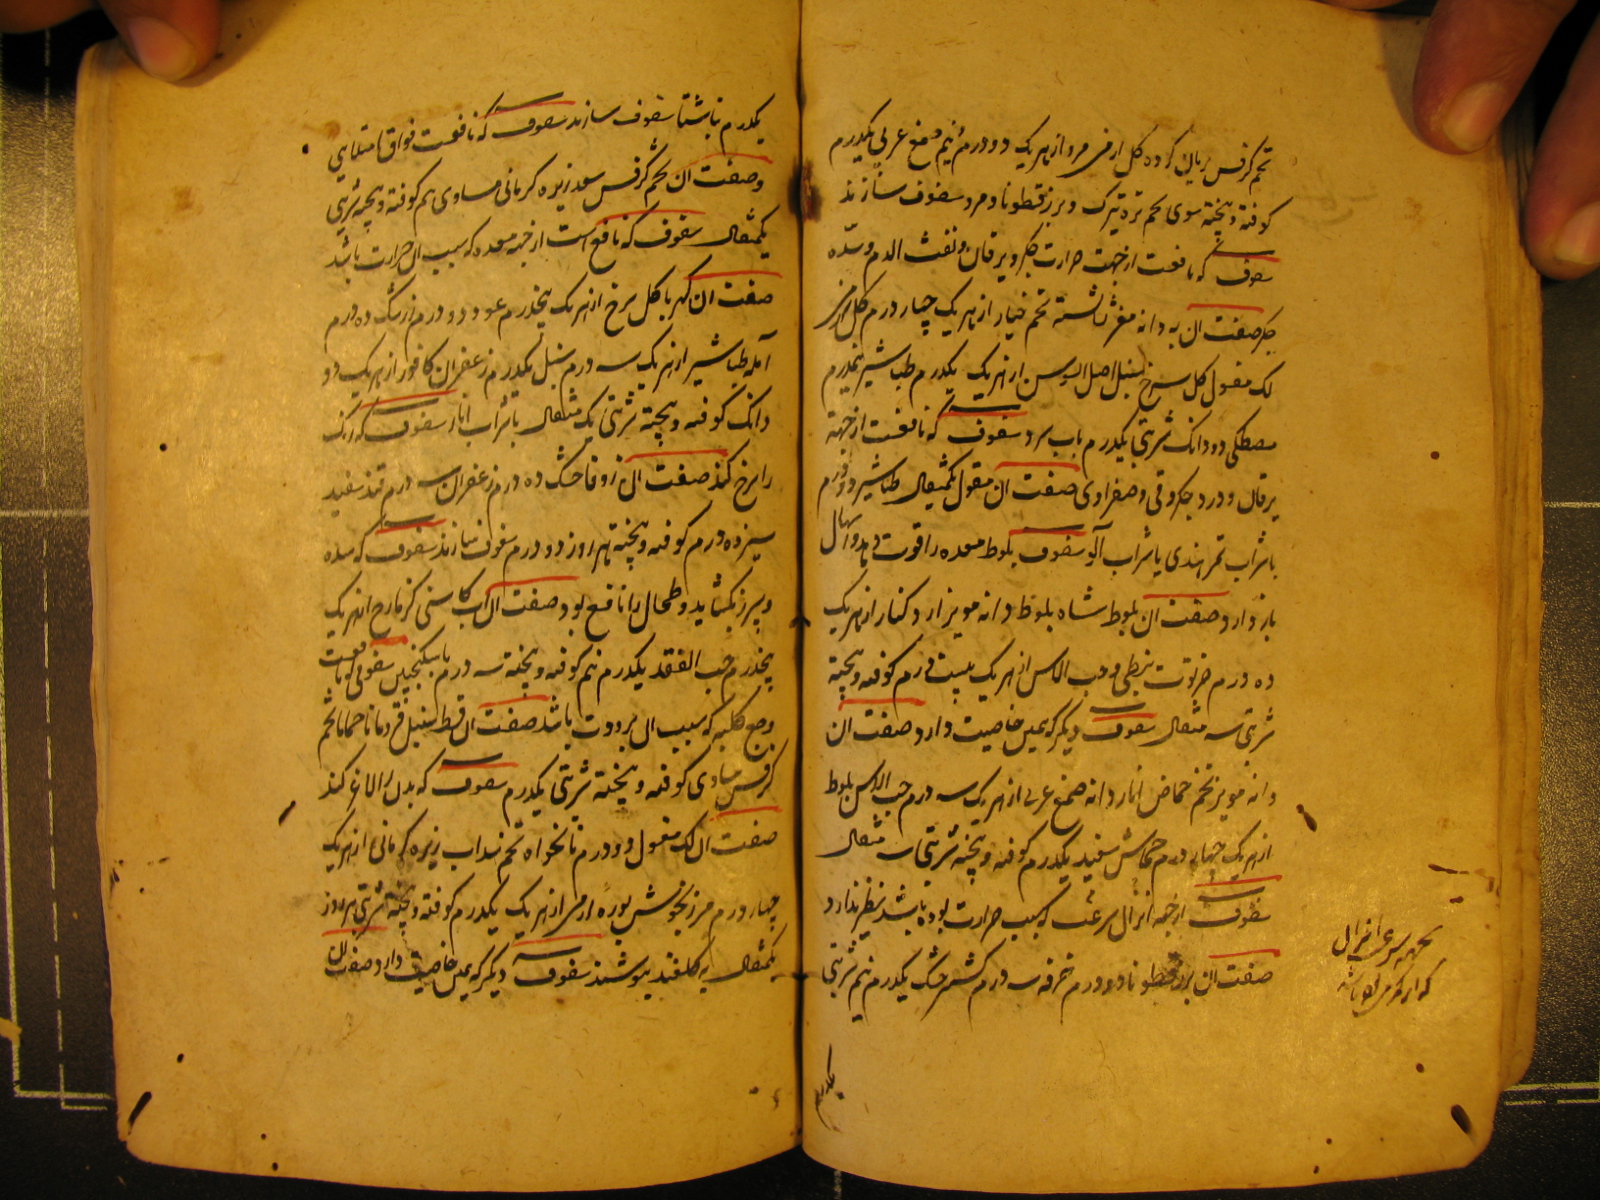 تخم کرفس بریان کرده کل ارمنی مرو از هر یک دو درم نیم صمغ عربی یکدرم
کوفته و بیخته سوی تخم تره تیزک و بزرقطونا و مرو سفوف سازند
سفوف که نافعست از جهت حرارت جگر و یرقان و نفث الدم و سده
جگر صفت ان به دانه مغز نشسته تخم خیار از هر یک چهار درم کل ارمنی
لک مغسول کل سرخ سنبل اصل السوس از هر یک یکدرم طباشیر نیمدرم
مصطکی دو دانک شربتی یکدرم باب سرد سفوف که نافعست از جهة
یرقان و درد جکر و قی صفراوی صفت ان مقول یکمثقال طباشیر دو درم
باشراب تمر هندی یا شراب آلو سفوف بلوط معده را قوت دهد و اسهال
باز دارد صفت ان بلوط شاه بلوط دانه مویز ارد کنار از هر یک
ده درم خرنوب نبطی و حب الاس از هر یک بیست درم کوفته و بیخته
شربتی سه مثقال سفوف دیگر که همین خاصیت دارد صفت ان
دانه مویز تخم حماض انار دانه صمغ عربی از هر یک سه درم حب الاس بلوط
از هر یک چهار درم خشخاش سفید یکدرم کوفته و بیخته شربتی سه مثقال
سفوف از جهة انزال سرعت که بسبب حرارت بوده باشد نظیر ندارد
صفت ان بزرقطونا دو درم خرفه سه درم کشنیز خشک یکدرم نیم شربتی
بجهة سرعت انزال
که از کرمی بوده باشد
یکدرم
یکدرم ناشتا سفوف سازند سفوف که نافعست فواق امتلایی
وصفت ان تخم کرفس سعد زیره کرمانی مساوی هم کوفته و بیخته شربتی
یکمثقال سفوف که نافع است از جهة معده که سبب ان حرارت باشد
صفت ان کهربا کل سرخ از هر یک پنجدرم عود دو درم زرشک ده درم
آمله طباشیر از هر یک سه درم سنبل یکدرم زعفران کافور از هر یک دو
دانک کوفته و بیخته شربتی یک مثقال باشراب انار سفوف که رنک
را سرخ کند صفت ان زوفا خشک ده درم زعفران سه درم قند سفید
سیزده درم کوفته و بیخته هر روز دو درم سفوف سازند سفوف که سده
و سپرز بکشاید و طحال را نافع بود صفت ان اب کاسنی کزمازج از هر یک
پنجدرم حب الفقد یکدرم نیم کوفته و بیخته سه درم با سکنجبین سفوفی که نافعست
وجع کلیه که سبب ان برودت باشد صفت ان قسط سنبل قردمانا حماما تخم
کرفس مساوی کوفته و بیخته شربتی یکدرم سفوف که بدن را لاغر کند
صفت ان لک مغسول دو درم نانخواه تخم سداب زیره کرمانی از هر یک
چهار درم مرزنجوش بوره ارمنی از هر یک یکدرم کوفته و بیخته شربتی هر روز
یکمثقال به کلقند بنوشند سفوف دیگر که همین خاصیت دارد صفت ان